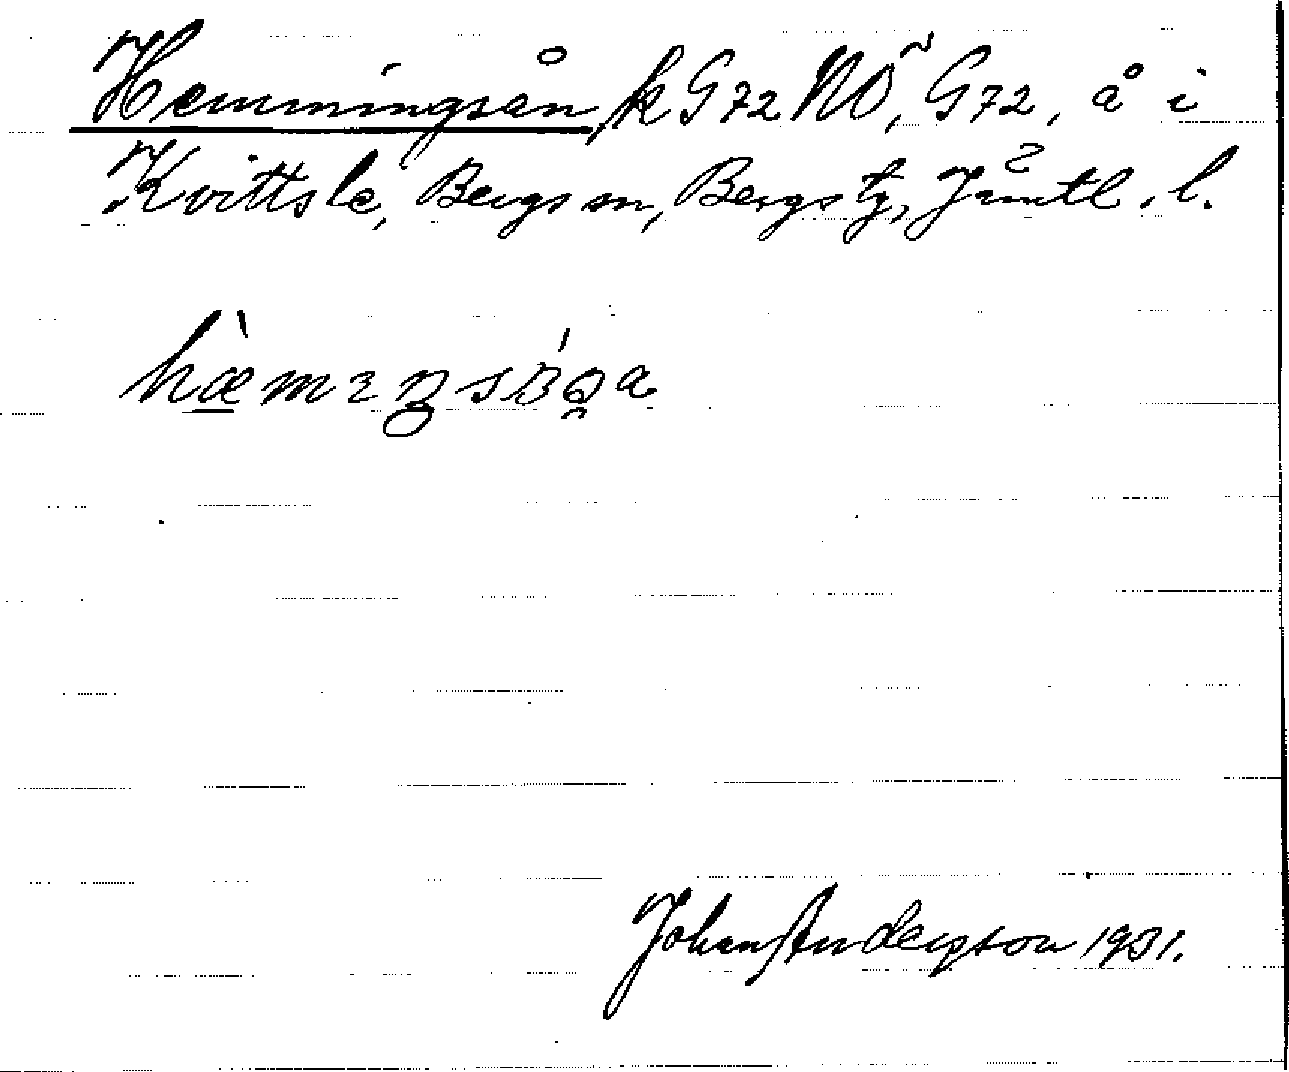 Hemmingsån, k G72 NÖ, G72, å i
Kvittsle, Bergs sn, Bergs tg, Jämtl. l.
Johan Anderson 1931.